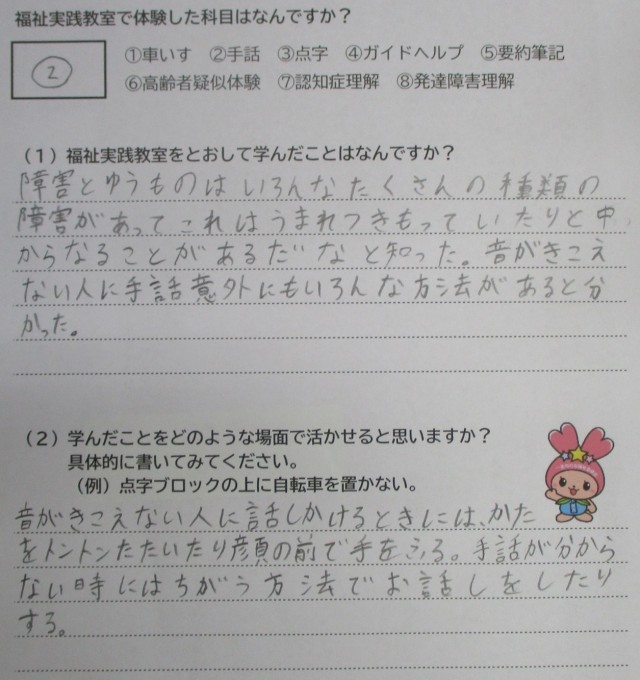 福祉実践教室で体験した科目はなんですか？
②
①車いす ②手話 ③点字 ④ガイドヘルプ ⑤要約筆記
⑥高齢者疑似体験 ⑦認知症理解 ⑧発達障害理解
（１）福祉実践教室をとおして学んだことはなんですか？
障害とゆうものはいろんなたくさんの種類の
障害があってこれはうまれつきもっていたりと中
からなることがあるだなと知った。音がきこえ
ない人に手話意外にもいろんな方法があると分
かった。
（２）学んだことをどのような場面で活かせると思いますか？
具体的に書いてみてください。
（例）点字ブロックの上に自転車を置かない。
音がきこえない人に話しかけるときには、かた
をトントンたたいたり顔の前で手をふる。手話が分から
ない時にはちがう方法でお話しをしたり
する。